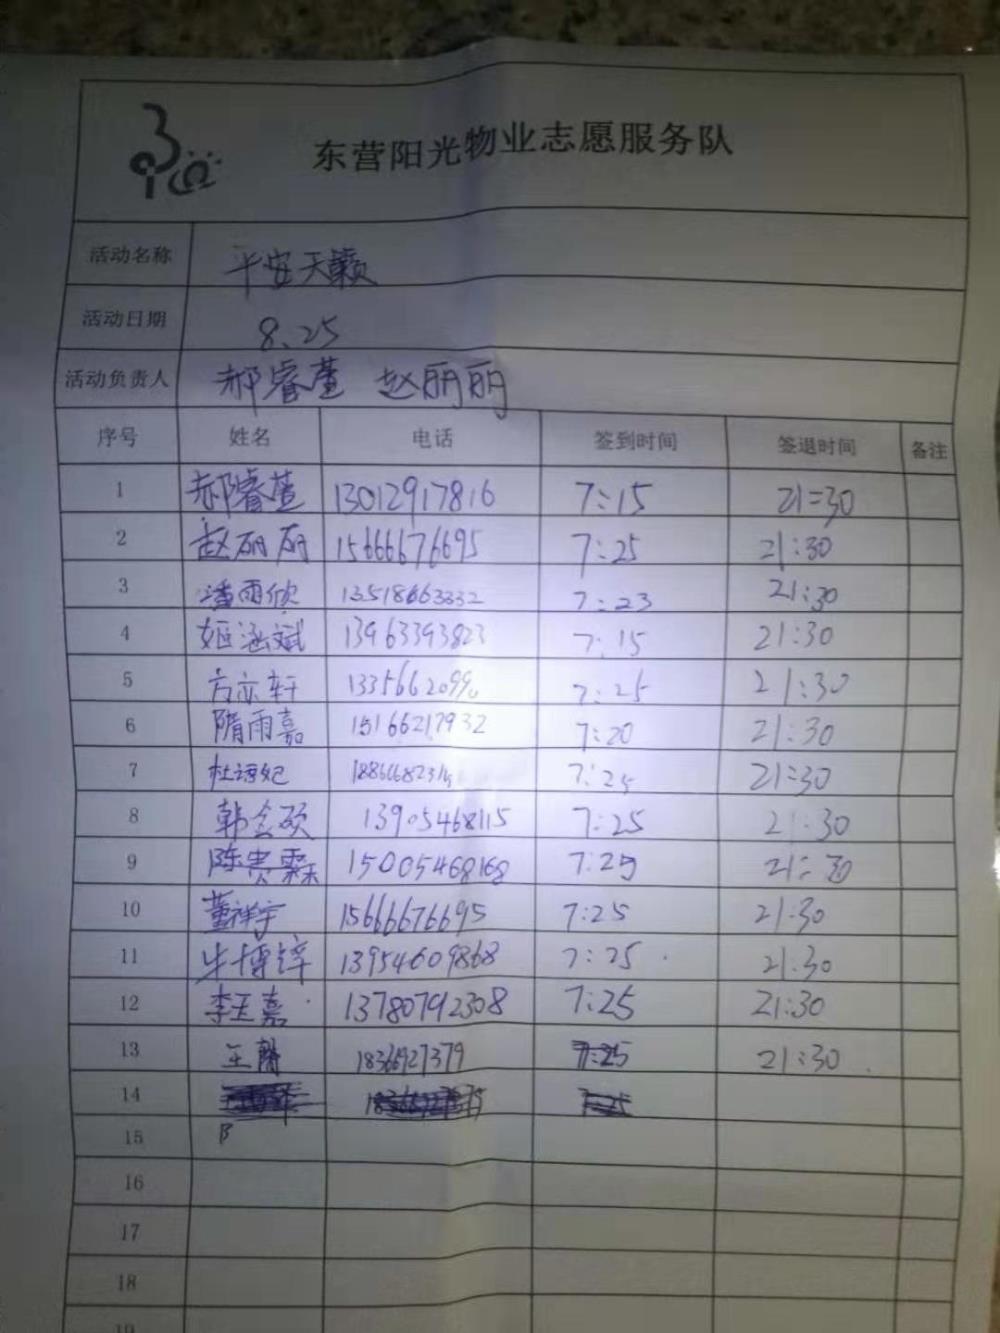 东营阳光物业志愿服务队
活动名称 平安天籁
活动日期 8.25
活动负责人 郝睿萱 赵丽丽
序号 姓名 电话 签到时间 签退时间 备注
1 郝睿萱 13012917816 7:15 21:30
2 赵丽丽 15666676695 7:25 21:30
3 潘雨欣 13518663332 7:23 21:30
4 姬涵斌 13963393823 7:15 21:30
5 方亦轩 7:25 21:30
6 隋雨嘉 15166217932 7:20 21:30
7 杜语妃 7:25 21:30
8 韩会硕 13905468115 7:25 21:30
9 陈贵霖 15005468168 7:25 21:30
10 董祥宇 15666676695 7:25 21:30
11 牛博锌 13954609868 7:25 21:30
12 李玉嘉 13780792308 7:25 21:30
13 王馨 18366927379 7:25 21:30
14
15
16
17
18
19